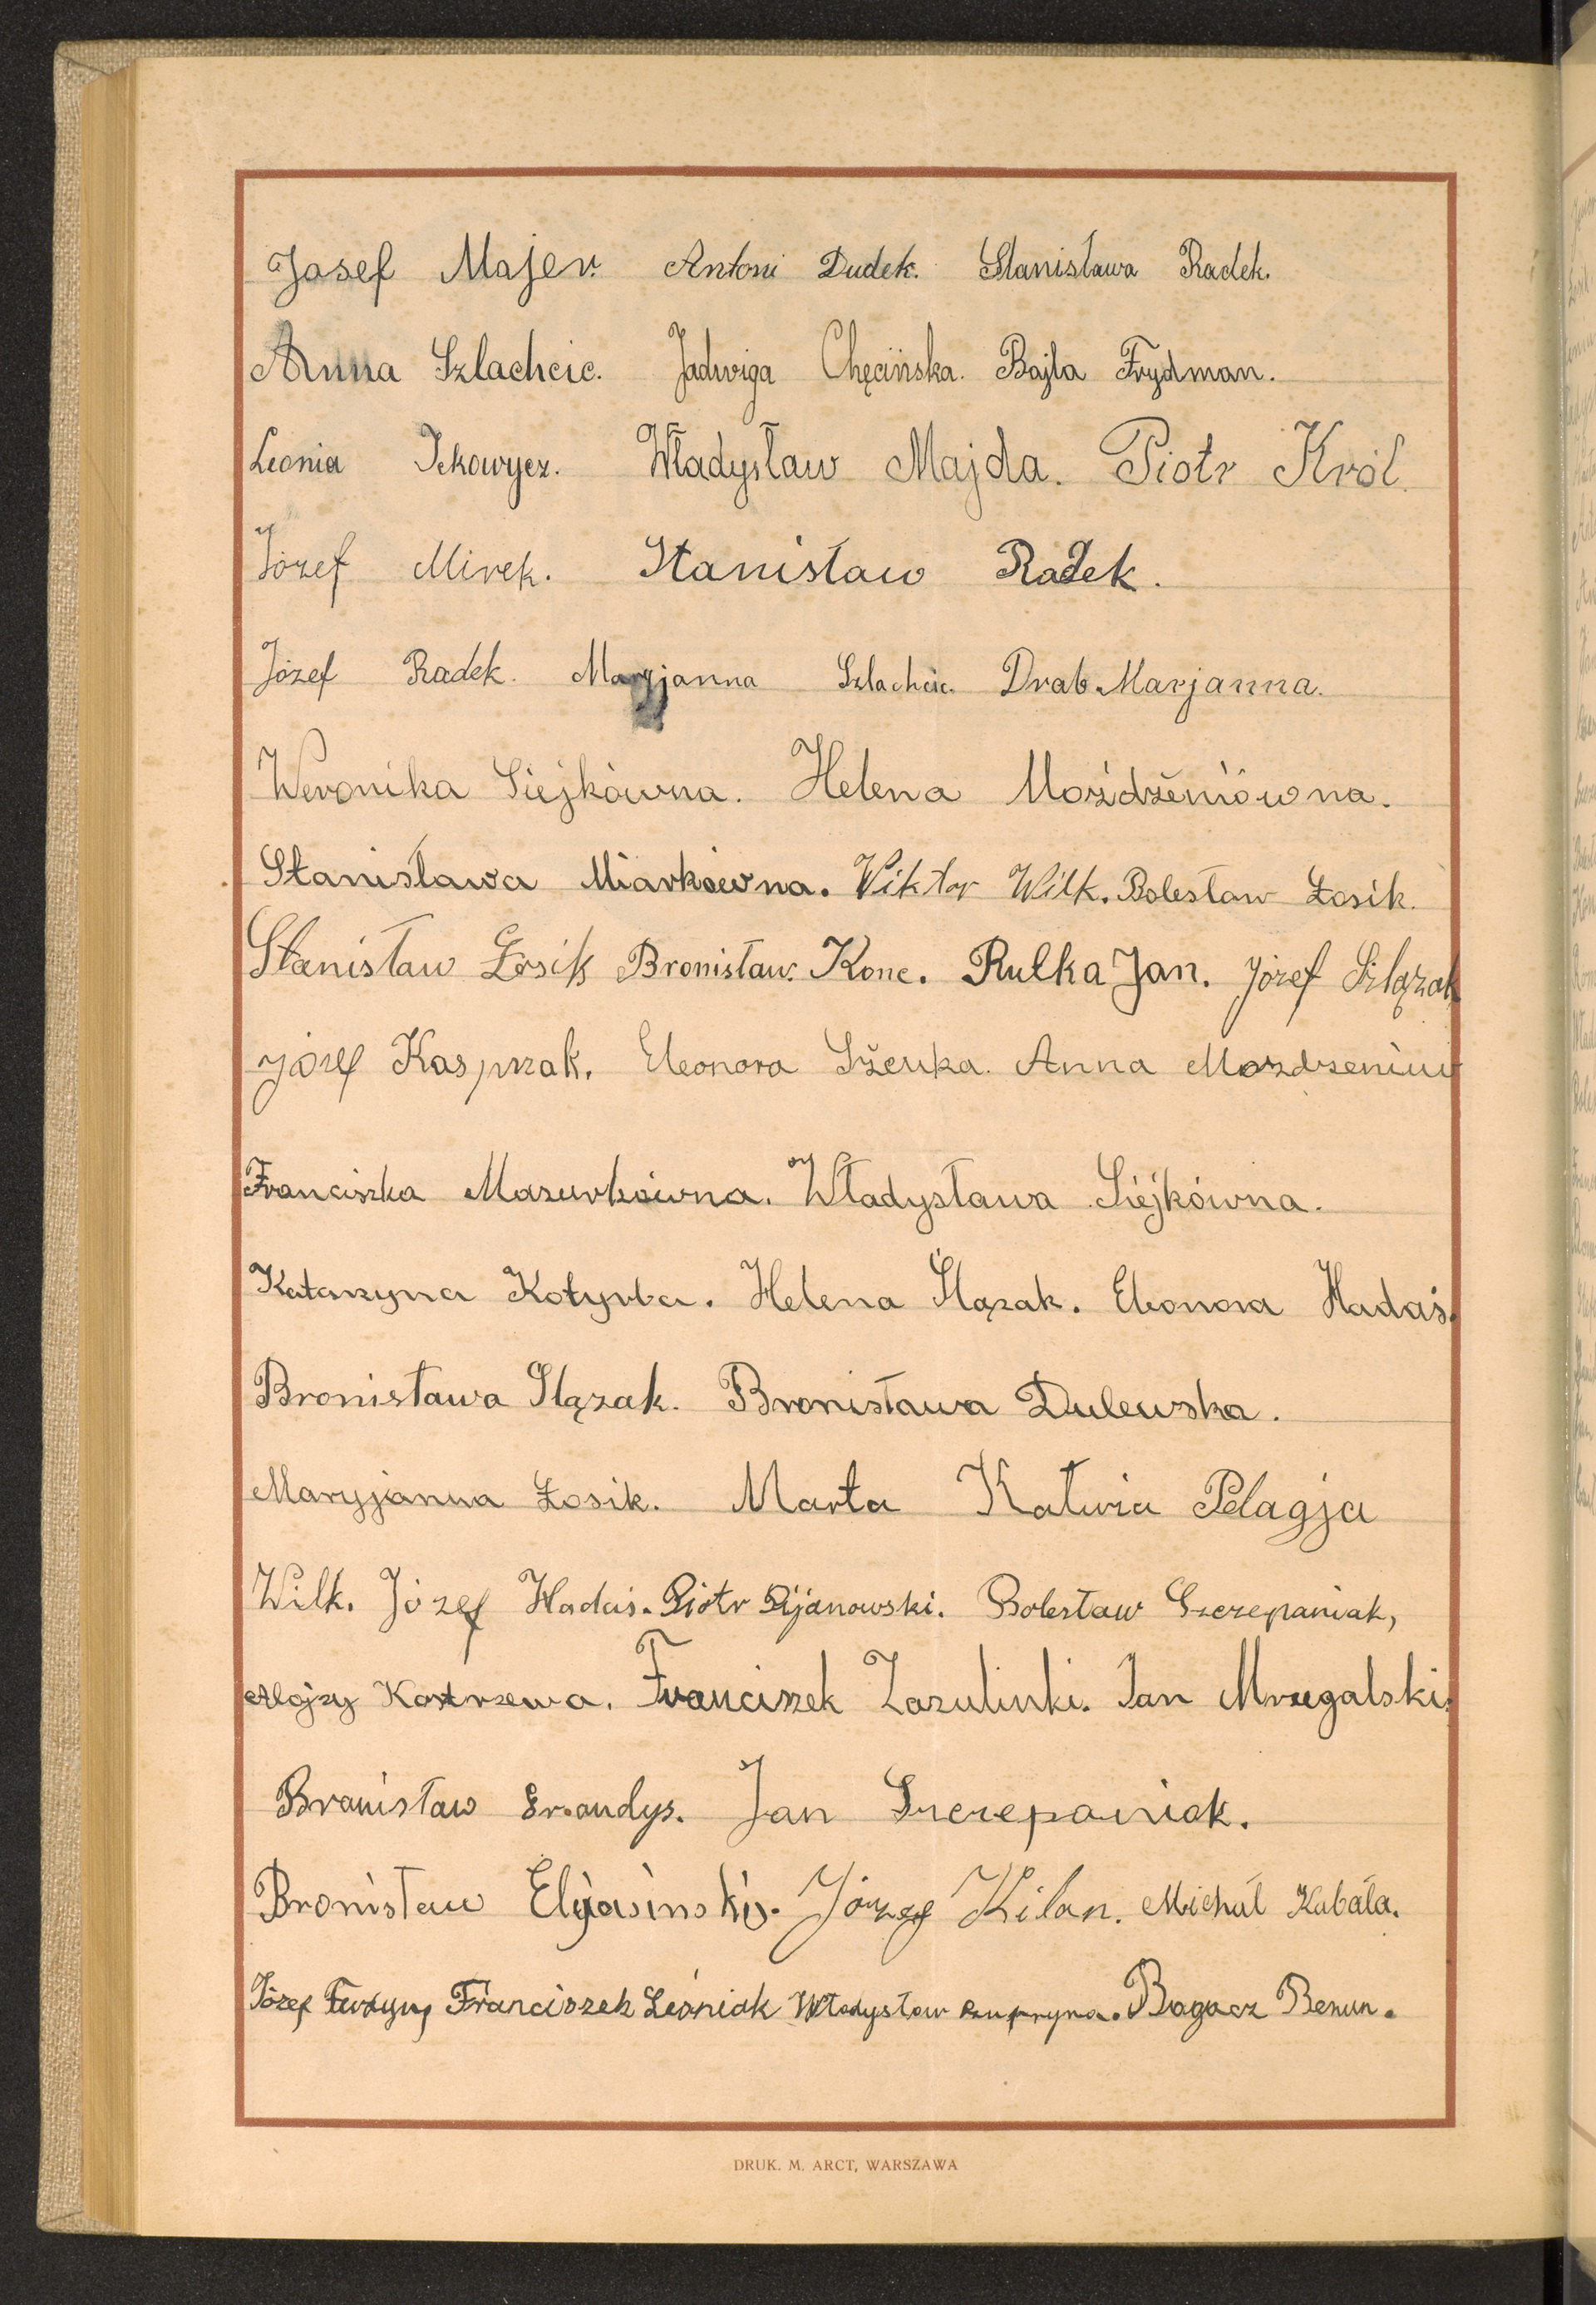 Josef Majer. Antoni Dudek. Stanisława Radek.
Anna Szlachcic. Jadwiga Chęcińska. Bajla Frydman.
Leonia Ickowycz. Władysław Majda. Piotr Król.
Józef Mirek. Stanisław Radek.
Józef Radek. Maryjanna Szlachcic. Drab Marjanna.
Weronika Siejkówna. Helena Moździeniówna.
Stanisława Miarkówna. Wiktor Wilk. Bolesław Łosik.
Stanisław Łosik Bronisław Konc. Rulka Jan. Józef Szlązak
Józef Kasprzak. Eleonora Anna Mozdzeniuw
Franciszka Mazurkówna. Władysława Siejkówna.
Katarzyna Kotyrba. Helena Ślązak. Eleonora Hadaś.
Bronisława Ślązak. Bronisława Dulewska.
Maryjanna Łosik. Marta Katuria Pelagja
Wilk. Józef Hadaś. Piotr Pijanowski. Bolesław Szczepaniak,
Alojzy Kostrzewa. Franciszek Zazulinki. Jan Mrzygalski.
Bronisław Jan Szczepaniak.
Bronisław Elijasinski. Józef Kilan. Michał Kabała.
Józef Franciszek Leśniak Władysław Czupryna. Bogacz Benun.
DRUK. M. ARCT, WARSZAWA